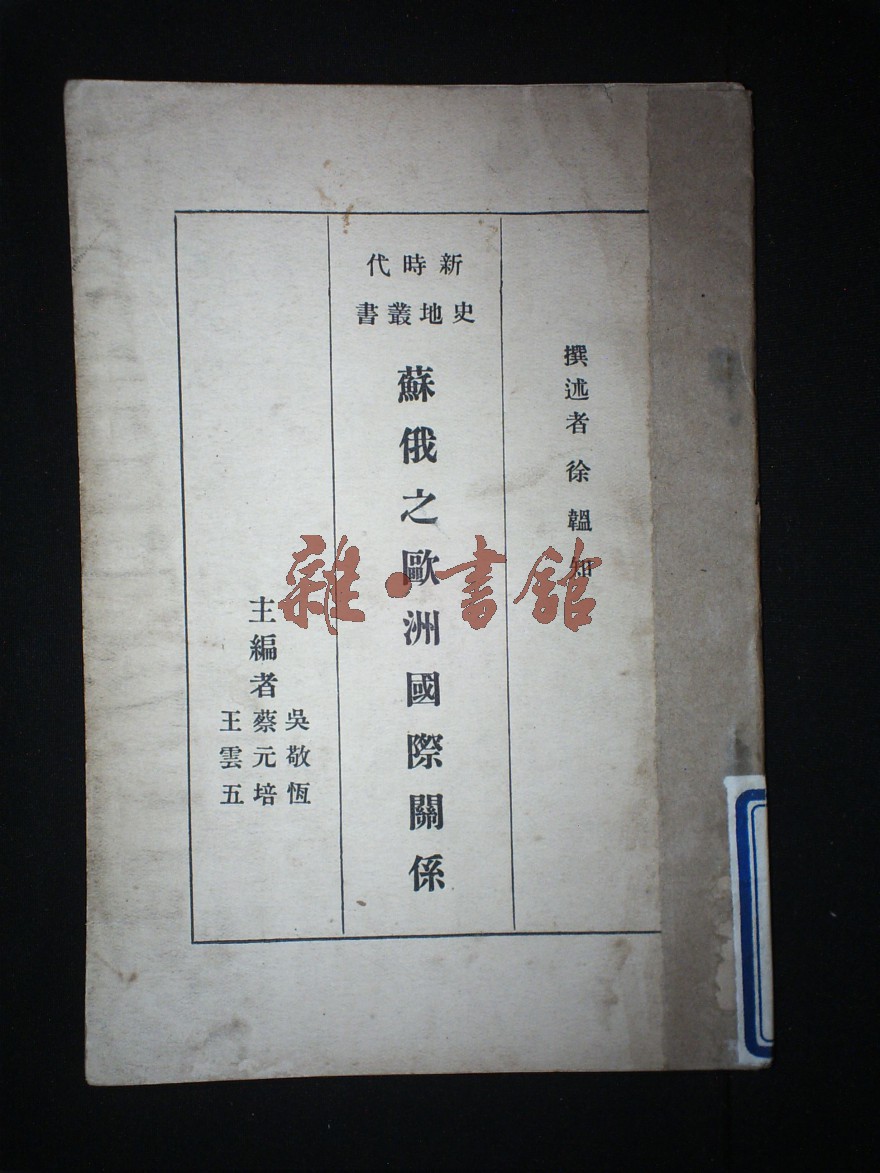 撰述者 徐韞知
新時代
史地叢書
蘇俄之歐洲國際關係
主編者
吳敬恆
蔡元培
王雲五
雜·書館